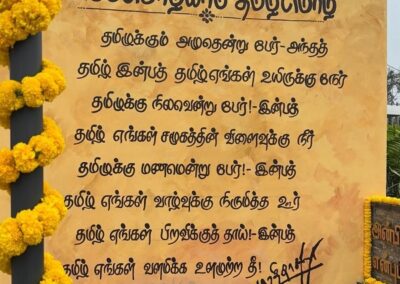 தமிழுக்கும் அமுதென்று பேர்-அந்தத்
தமிழ் இன்பத் தமிழ்எங்கள் உயிருக்கு நேர்
தமிழுக்கு நிலவென்று பேர்!-இன்பத்
தமிழ் எங்கள் சமூகத்தின் விளைவுக்கு நீர்
தமிழுக்கு மணமென்று பேர்!-இன்பத்
தமிழ் எங்கள் வாழ்வுக்கு நிருமித்த ஊர்
தமிழ் எங்கள் பிறவிக்குத் தாய்!-இன்பத்
தமிழ் எங்கள் வளமிக்க உளமுற்ற தீ!